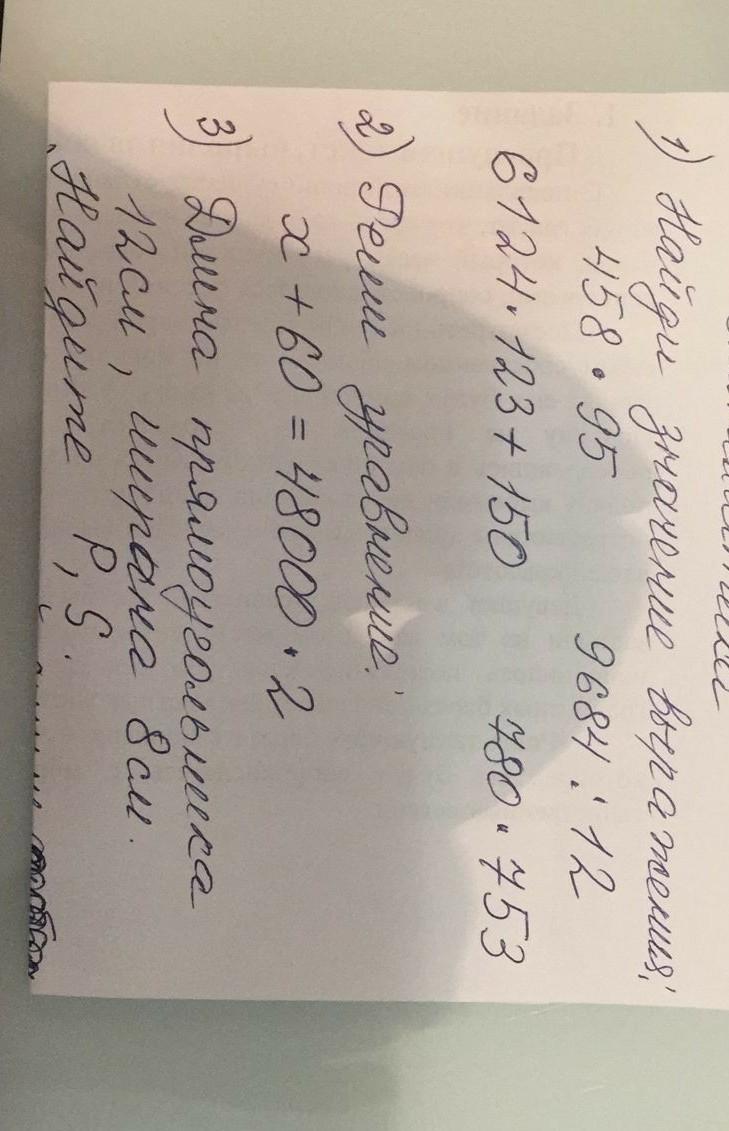 1) Найди значение выражения;
458 · 95 9684 : 12
6124 · 123 + 150 780 · 753
2) Реши уравнение;
х + 60 = 48000 · 2
3) Длина прямоугольника
12 см, ширина 8 см.
Найдите P, S.